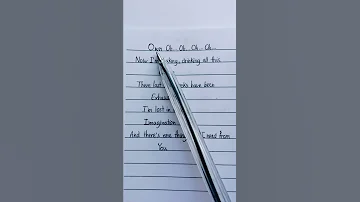 Own Oh... Oh... Oh... Oh...
Now I'm drinking all this
These last have been
I'm lost in
Imagination
And there's one thing I need from
You